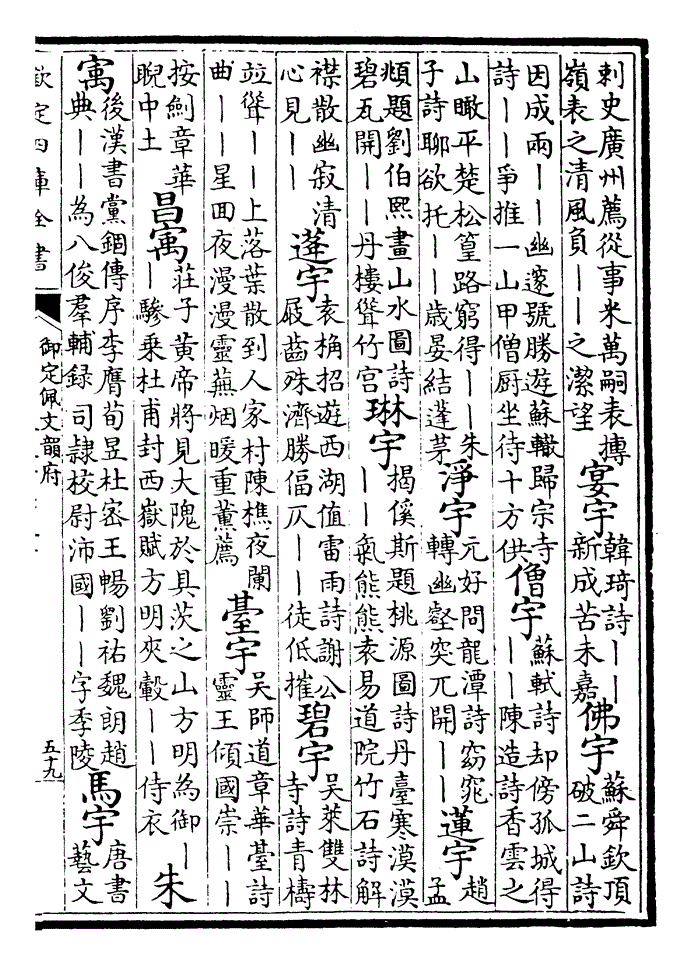 刺史廣州薦從事米萬嗣表搏
嶺表之清風負丨丨之潔望
宴宇
韓琦詩丨丨
新成苦未嘉
佛宇
蘇舜欽頂
破二山詩
因成兩丨丨幽邃號勝遊蘇轍歸宗寺
詩丨丨爭推一山甲僧厨坐待十方供
僧宇
蘇軾詩却傍孤城得
丨丨陳造詩香雲之
山瞰平楚松篁路窮得丨丨朱
子詩聊欲托丨丨歲晏結蓬茅
淨宇
元好問龍潭詩窈窕
轉幽壑突兀開丨丨
蓮宇
趙
孟
頫題劉伯熙畫山水圖詩
碧瓦開丨丨丹樓聳竹宮
琳宇
揭傒斯題桃源圖詩丹臺寒漠漠
丨丨氣熊熊袁易道院竹石詩解
襟散幽寂清
心見丨丨
蓬宇
袁桷招遊西湖值雷雨詩謝公
屐齒殊濟勝偪仄丨丨徒低摧
碧宇
吳萊雙林
寺詩青檮
竝聳丨丨上落葉散到人家村陳樵夜闌
曲丨丨星回夜漫漫靈蕪烟暖重薰薦
臺宇
吳師道章華臺詩
靈王傾國崇丨丨
按劍章華
睨中土
昌㝢
莊子黄帝將見大隗於具茨之山方明為御丨
丨驂乘杜甫封西嶽賦方明夾轂丨丨侍衣
朱
㝢
後漢書黨錮傳序李膺荀昱杜密王暢劉祐魏朗趙
典丨丨為八俊羣輔録司隸校尉沛國丨丨字季陵
馬宇
唐書
藝文
欽定四庫全書
御定佩文韻府
五十九